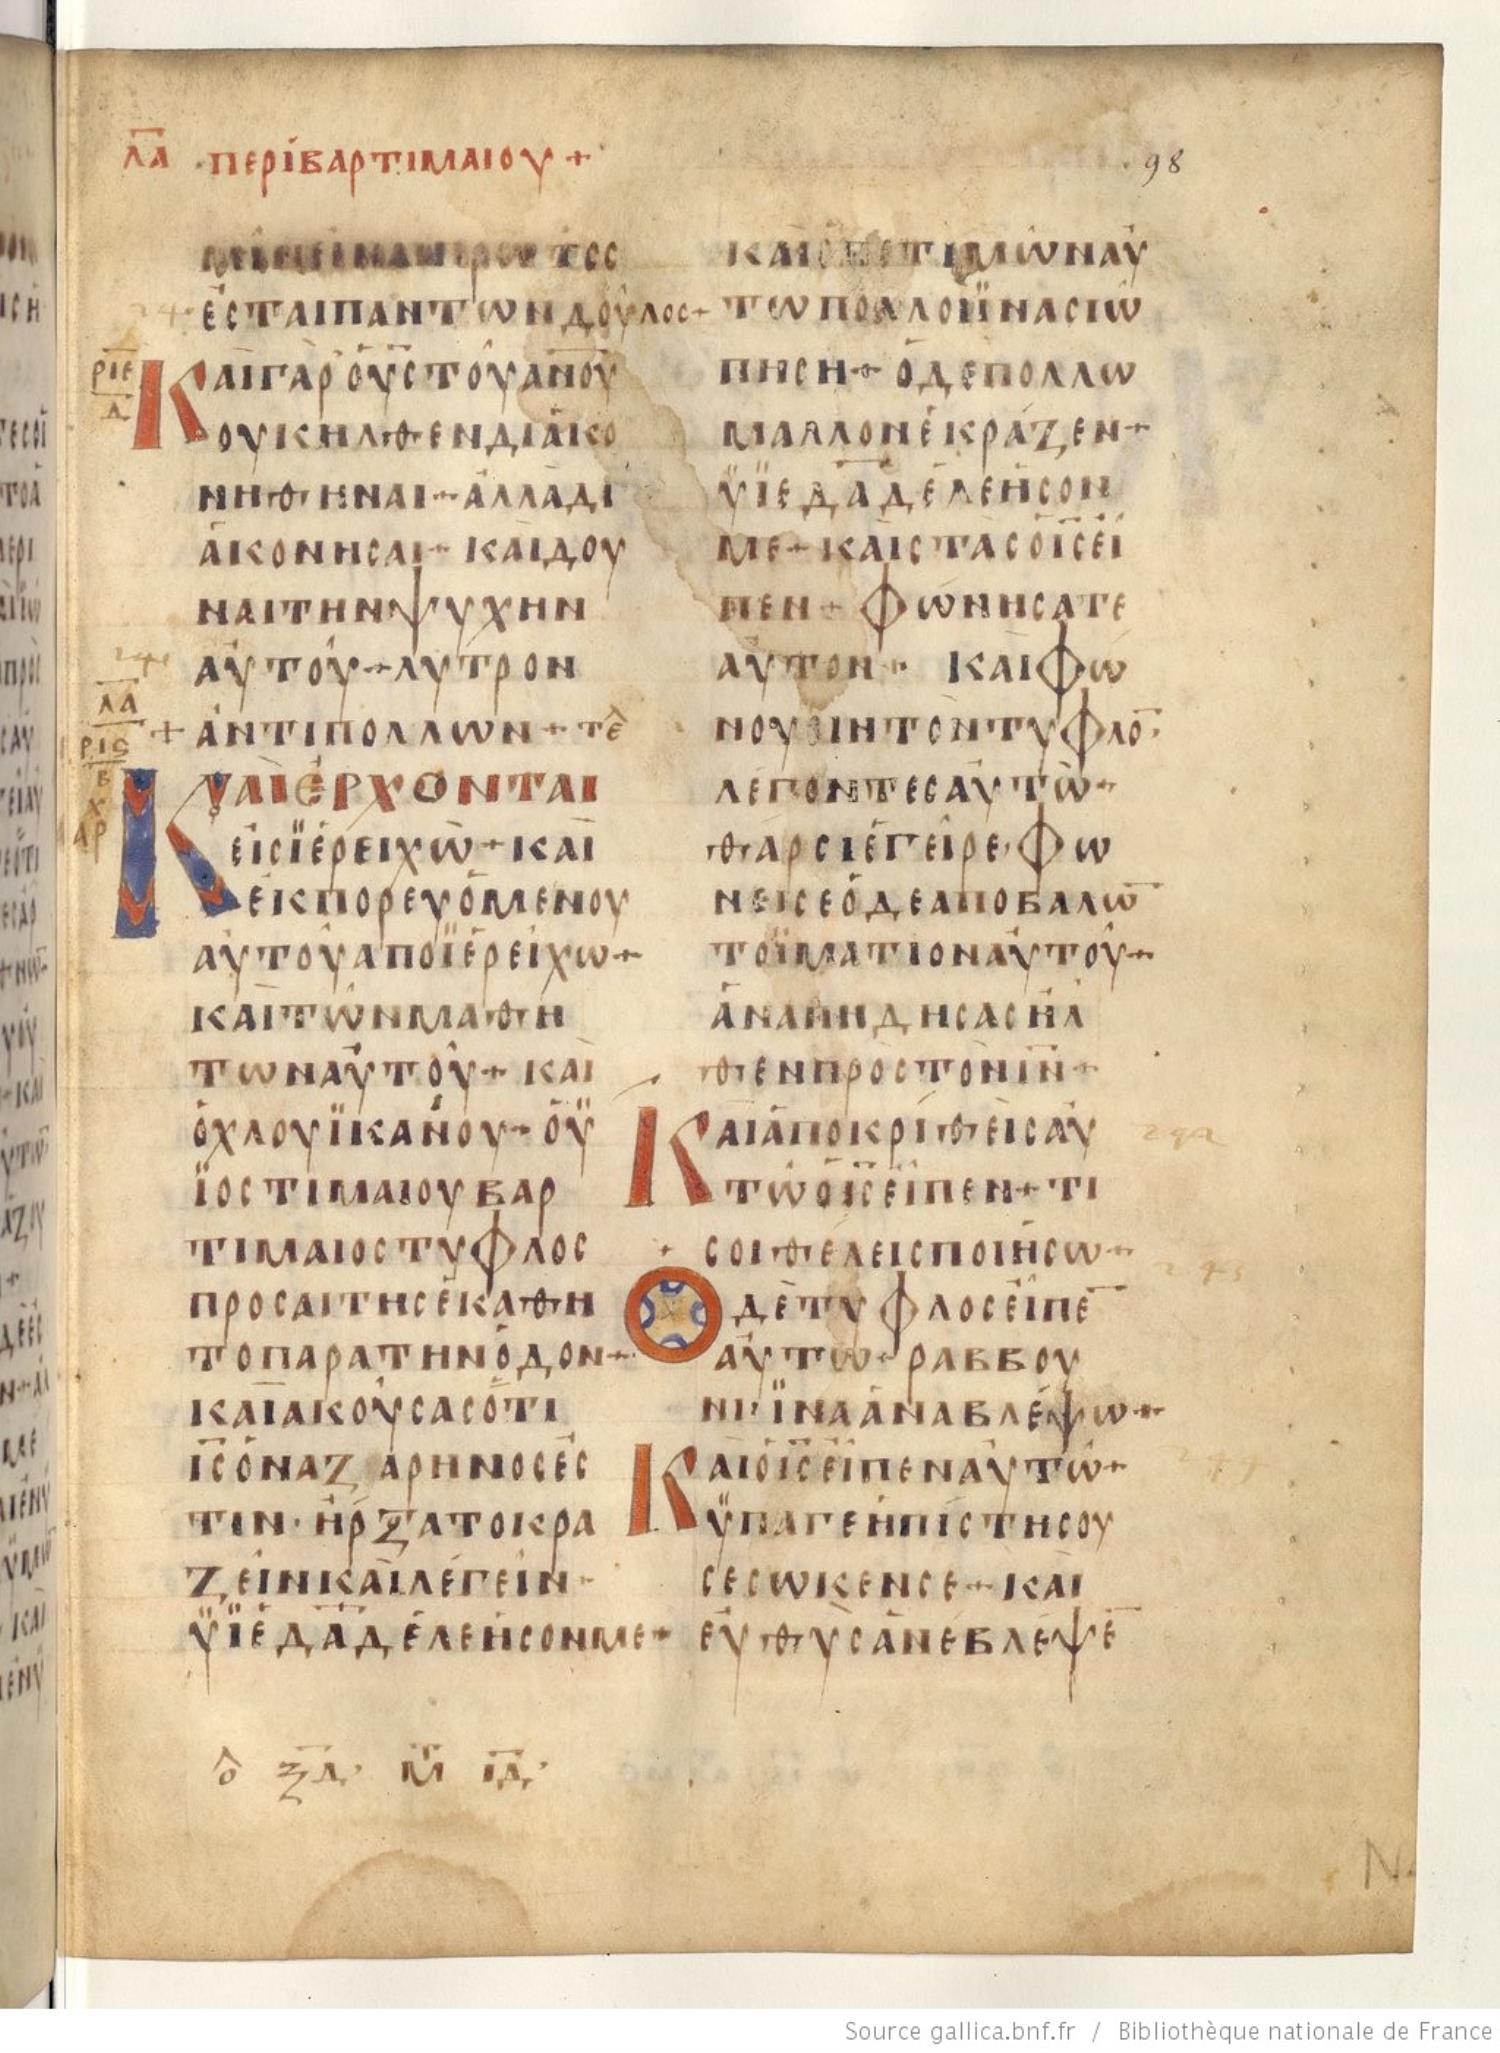 λα περὶ βαρτιμαιου +
98
πρωτος
ἐσται παντων δοῦλος +
ριε
δ
Και γὰρ ὁ υς τοῦ ανου
ουκ ηλθεν διακο
νηθηναι + ἀλλὰ δι
ἀκονησαι + καὶ δου
ναι την ψυχην
αὐτοῦ + λυτρον
λα
ρις
β
+ ἀντι πολλων + τε
χ
αρ
Καὶ ἐρχονται
εἰς ϊέρειχὼ + καὶ
ἐκπορευὁμενου
αὐτοῦ απο ϊέρείχω +
καὶ τῶν μαθη
των αὐτοῦ + καὶ
ὀχλου ϊκανου + ὁ ϋ
ϊος τιμαιου βαρ
τιμαιος τυφλος
προσαιτης ἐκαθη
το παρα την ὁδον +
και ακούσας ὅτι
ις ὁ ναζαρηνος ἐς
τιν · ἠρξατο κρα
ζειν καὶ λέγειν
ϋϊὲ δαδ ἐλεησον με +
καὶ ἐπετιμων αὐ
τω πολλοὶ ϊνα σιω
πηση + ὁ δε πολλω
μαλλον ἐκραζεν +
ϋϊε δαδ ἐλεησον
με + καὶ στας ὁ ις εἰ
πεν + φωνησατε
αυτον + και φω
νουσιν τον τυφλο
λεγοντες αὐτῶ +
θαρσι ἐγειρε, φω
νει σε ὁ δε αποβαλω
το ϊματιον αὐτοῦ +
ἀναπηδησας ηλ
θεν πρὸς τὸν ιν +
Και ἀποκριθεὶς αὐ
τῶ ὁ ις εἰπεν + τι
σοι θέλεις ποιήσω +
Ο δὲ τυφλος εἰπε
αὐτω + ραββου
νι· ϊνα ἀναβλέψω +
Και ὁ ις εἰπεν αὐτῶ +
ϋπαγε ἡ πίστης ου
σεσωκεν σε + και
εὐθὺς ἀνέβλεψε
ο ξδ, μ ιδ,
N
Source gallica.bnf.fr / Bibliothèque nationale de France